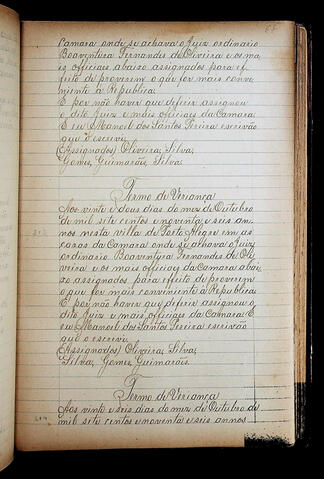 Camara onde se achava o Juiz ordinario
Boaventura Fernandes de Oliveira e os ma
is officiaes abaixo assignados para ef
feito de proverem o que for mais conve
miente à Republica.
E por não haver que deferir assignou
o dito Juiz e mais officiaes da Camara.
E eu Manoel dos Santos Pereira escrivão
que o escrevi.
(Assignados) Oliveira, Silva,
Gomes, Guimarães, Silva.
Termo de Veriança
Aos vinte e dous dias do mez de Outubro
de mil sete centos e noventa e seis an
nos nesta villa de Porto Alegre em as
casas da Camara onde se achava o Juiz
ordinario Boaventura Fernandes de Oli
veira e os mais officiaes da Camara abai
xo assignados para effeito de proverem
o que for mais conviniente à Republica.
E por não haver que deferir assignou o
dito Juiz e mais officiaes da Camara. E
eu Manoel dos Santos Pereira escrivão
que o escrevi.
(Assignados) Oliveira, Silva,
Silva, Gomes, Guimarães.
Termo de Veriança
Aos vinte e seis dias do mez de Outubro de
mil sete centos e noventa e seis annos